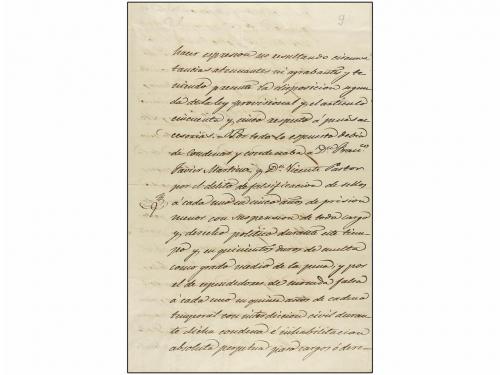 9
hacer espresion no resultando circuns
tancias atenuantes ni agrabantes y te
niendo presente la disposicion segun
da de la ley provisional y el articulo
cincuenta y cinco respeto a penas ac
cesorias. Por todo lo espuesto debia
de condenar y condenaba a Dn. Franco.
Javier Martinez y Dn. Vicente Pastor
por el delito de falsificacion de sellos
á cada uno en cinco años de prision
menor con suspension de todo cargo
y derecho politico durante este tiem
po y en quinientos duros de multa
como grado medio de la pena, y por
el de espendedores de moneda falsa
á cada uno en quince años de cadena
temporal con interdicion civil duran
te dicha condena é inhabilitacion
absoluta perpetua para cargos ó dere-